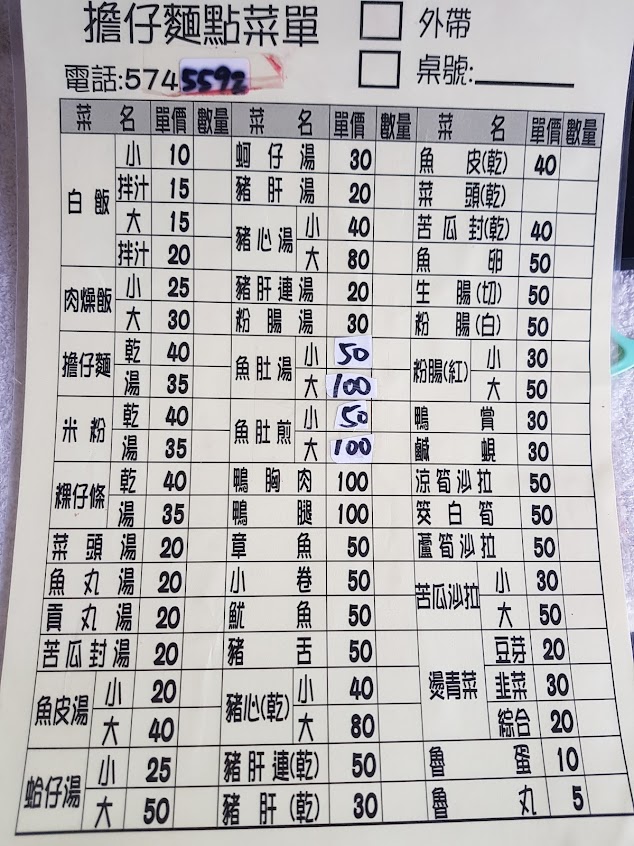 擔仔麵點菜單
外帶
電話:574 5592
桌號:
菜名 單價 數量 菜名 單價 數量 菜名 單價 數量
白飯 小 10 蚵仔湯 30 魚皮(乾) 40
拌汁 15 豬肝湯 20 菜頭(乾)
大 15 豬心湯 小 40 苦瓜封(乾) 40
拌汁 20 大 80 魚卵 50
肉燥飯 小 25 豬肝連湯 20 生腸(切) 50
大 30 粉腸湯 30 粉腸(白) 50
擔仔麵 乾 40 魚肚湯 小 50 粉腸(紅) 小 30
湯 35 大 100 大 50
米粉 乾 40 魚肚煎 小 50 鴨賞 30
湯 35 大 100 鹹蜆 30
粿仔條 乾 40 鴨胸肉 100 涼筍沙拉 50
湯 35 鴨腿 100 筊白筍 50
菜頭湯 20 章魚 50 蘆筍沙拉 50
魚丸湯 20 小卷 50 苦瓜沙拉 小 30
貢丸湯 20 魷魚 50 大 50
苦瓜封湯 20 豬舌 50 燙青菜 豆芽 20
魚皮湯 小 20 豬心(乾) 小 40 韭菜 30
大 40 大 80 綜合 20
蛤仔湯 小 25 豬肝連(乾) 50 魯蛋 10
大 50 豬肝(乾) 30 魯丸 5